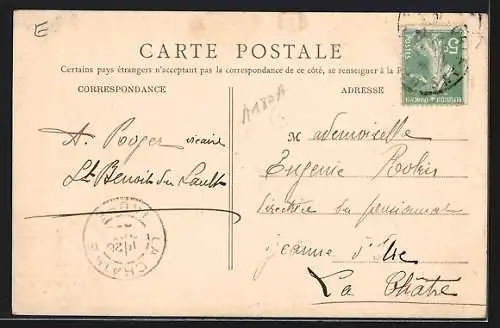 E
CARTE POSTALE
Certains pays étrangers n'acceptant pas la correspondance de ce côté, se renseigner à la P
CORRESPONDANCE
ADRESSE
A180A
A. Roger vicaire
St Benoit du Sault
Mademoiselle
Eugénie Robin
Directrice du pensionnat
Jeanne d'Arc
La Châtre
5c
POSTES
LA CHATRE